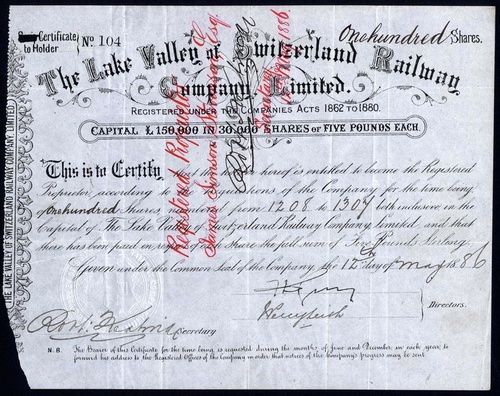 Certificate to Holder
No. 104
One hundred Shares.
The Lake Valley of Switzerland Railway
Company Limited.
REGISTERED UNDER THE COMPANIES ACTS 1862 TO 1880.
CAPITAL £150,000 IN 30,000 SHARES OF FIVE POUNDS EACH.
This is to Certify that the hereof is entitled to become the Registered
Proprietor, according to the Regulations of the Company for the time being
of One hundred Shares, numbered from 1208 to 1307 both inclusive in the
Capital of The Lake Valley of Switzerland Railway Company Limited and that
there has been paid in respect of each Share the full sum of Five Pounds Sterling.
Given under the Common Seal of the Company the 12 day of May 1886
Directors.
Secretary
N.B. The Bearer of this Certificate for the time being is requested during the months of June and December, in each year, to
forward his address to the Registered Offices of the Company in order that notices of the Company's progress may be sent
Registered Proprietor
James Simson Esq.
1886.
THE LAKE VALLEY OF SWITZERLAND RAILWAY COMPANY LIMITED